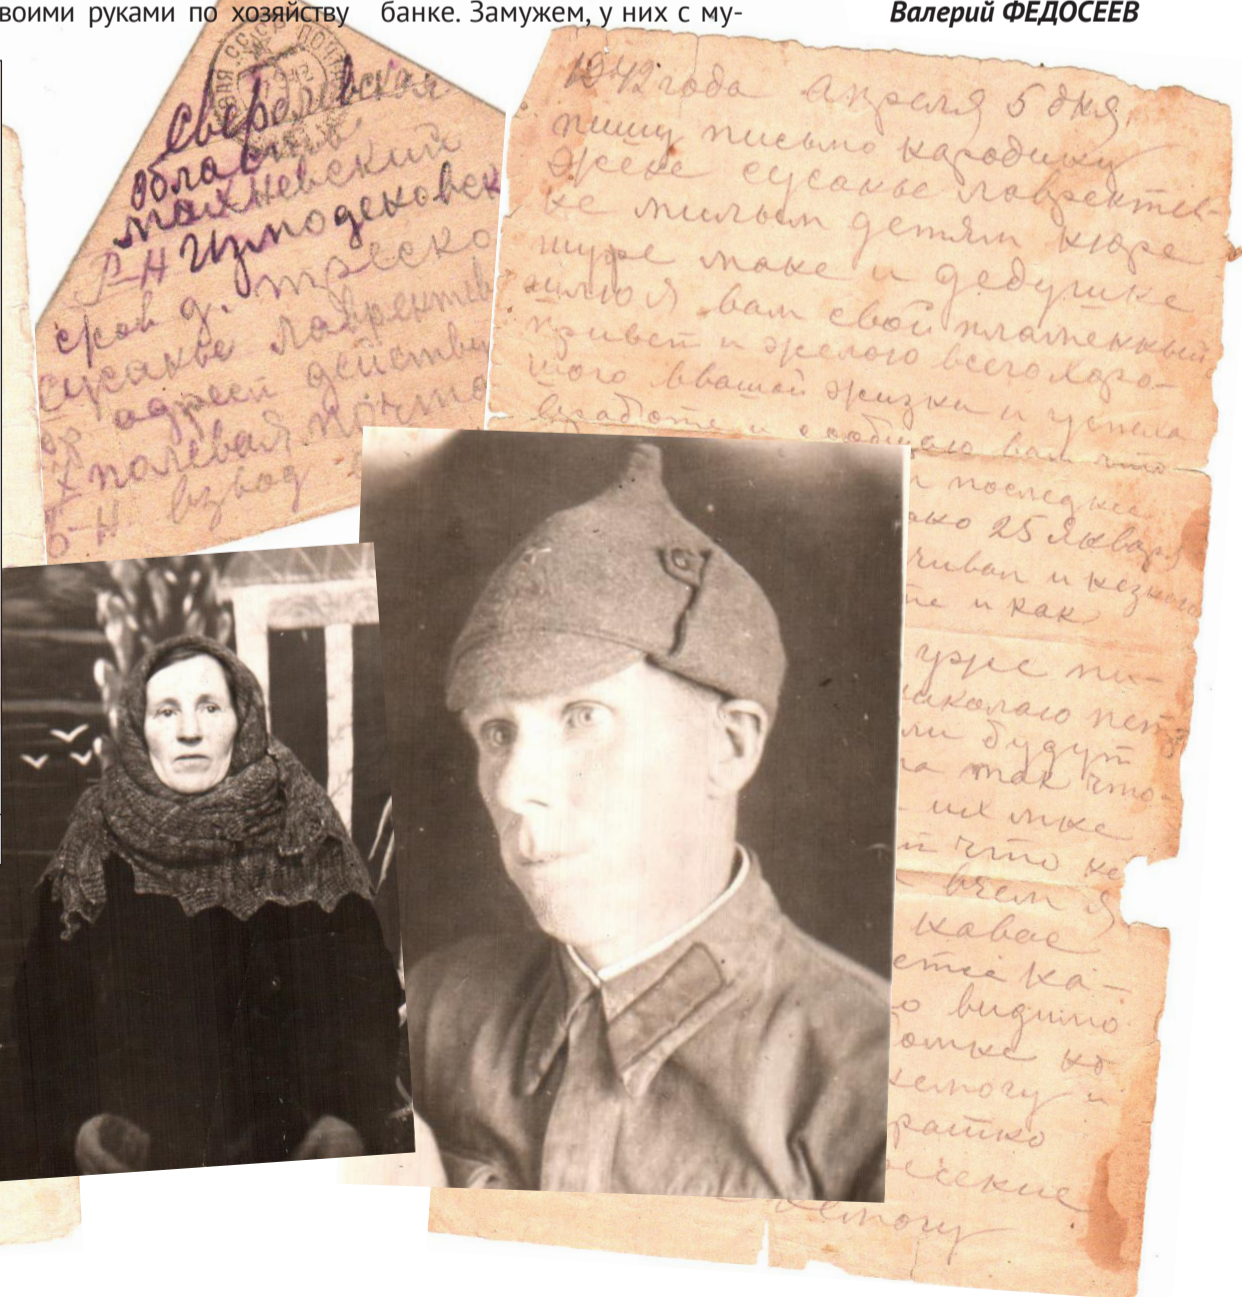 воими руками по хозяйству
банке. Замужем, у них с му-
Валерий ФЕДОСЕЕВ
СССР ПОЧТА
Свердловская
область
махневский
Р-Н Измоденовск
д. треско
сусанье лаврентьев
адрес действу
полевая почта
Б-Н взвод
1942 года апреля 5 дня
пишу письмо
жене сусанье лаврентев-
не милым детям нюре
шуре мане и дедушке
шлю я вам свой пламенный
привет и желаю всего харо-
шого в вашей жизни и успеха
вработе и сообщаю вам что
последне
25 января
чивал и незнаю
те и как
уже пи-
николаю пет
ли будут
на так что-
их мне
что не
вчем я
навас
ка-
видимо
немогу и
ратко
немогу